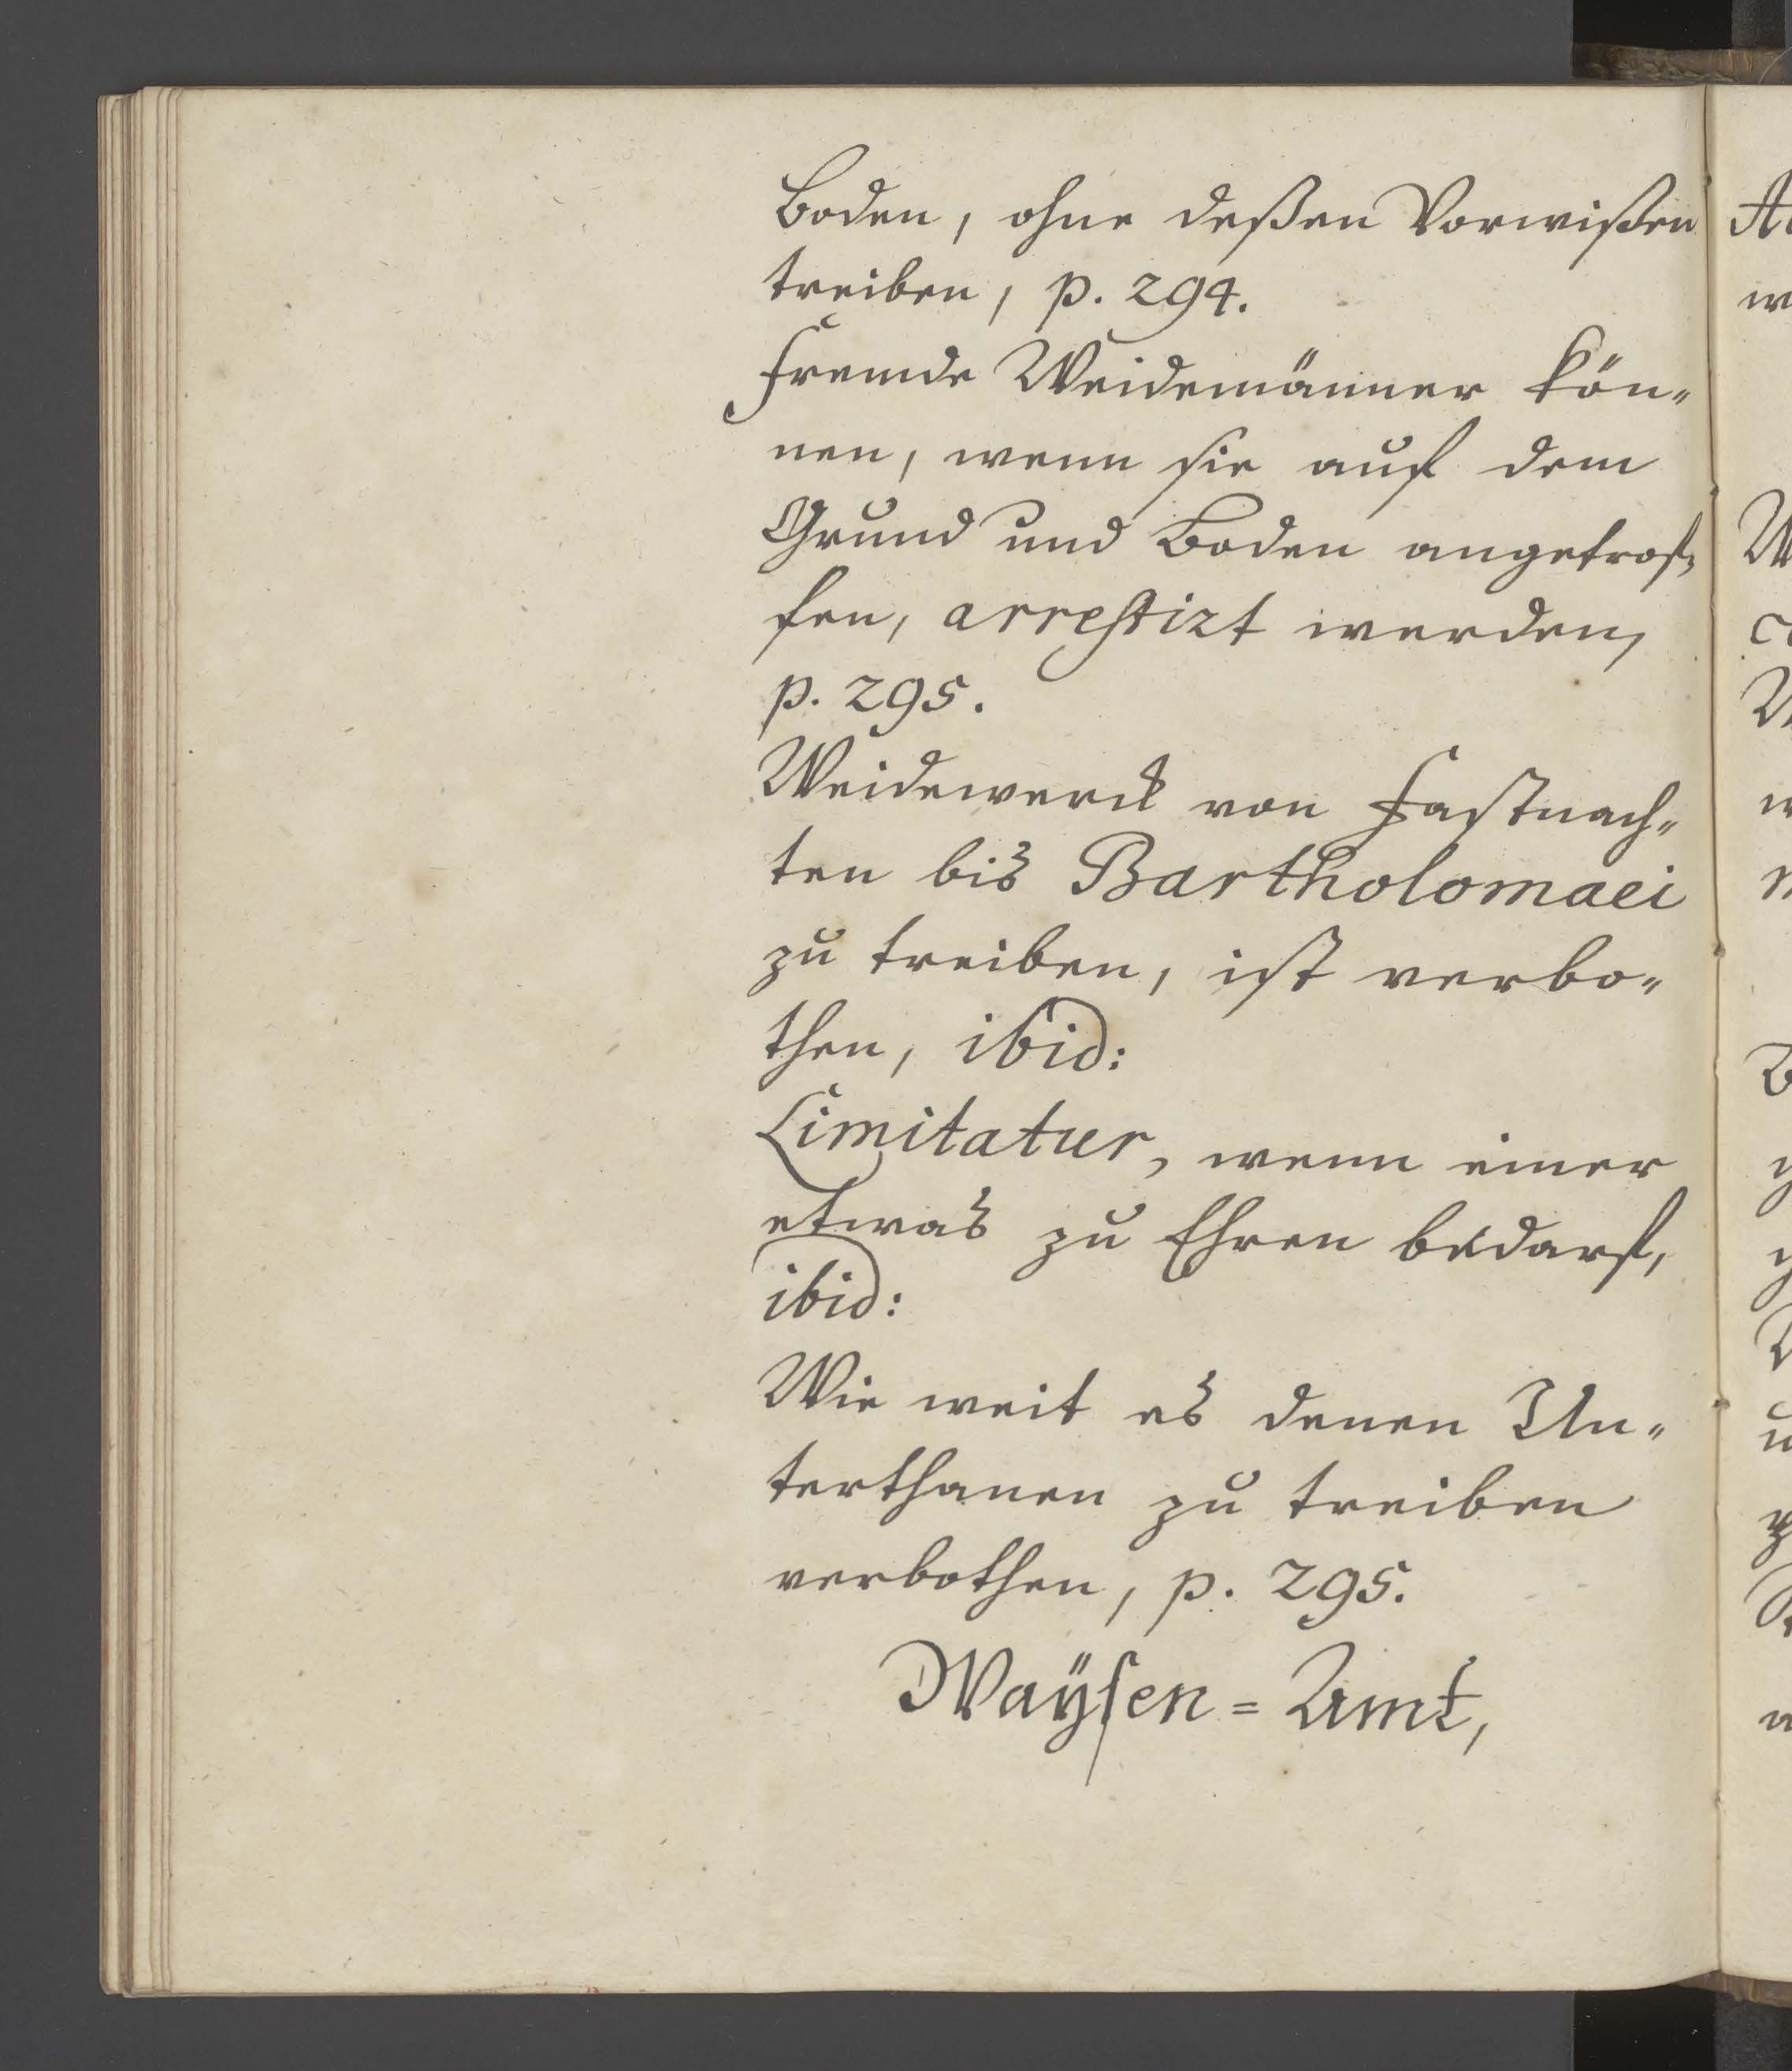 Boden, ohne deßen Vorwißen
treiben, p. 294.
Fremde Weidemänner kön„
nen, wenn sie auf dem
Grund und Boden angetrof„
fen, arrestirt werden,
p. 295.
Weidewerck von Fastnach„
ten bis Bartholomaei
zu treiben, ist verbo„
then, ibid:
Limitatur, wenn einer
etwas zu Ehren bedarf,
ibid:
Wie weit es denen Un„
terthanen zu treiben
verbothen, p. 295.
Waÿsen=Amt,